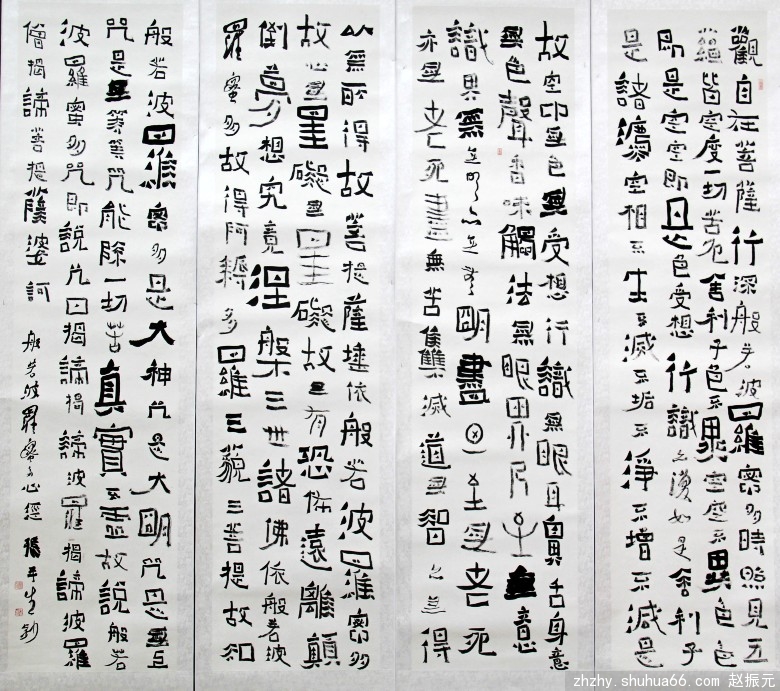 觀自在菩薩行深般若波羅蜜多時照見五
蘊皆空度一切苦厄舍利子色不異空空不異色色
即是空空即是色受想行識亦復如是舍利子
是諸法空相不生不滅不垢不淨不增不減是
故空中無色無受想行識無眼耳鼻舌身意
無色聲香味觸法無眼界乃至無意
識界無無明亦無無明盡乃至無老死
亦無老死盡無苦集滅道無智亦無得
以無所得故菩提薩埵依般若波羅蜜多
故心無罣礙無罣礙故無有恐怖遠離顛
倒夢想究竟涅槃三世諸佛依般若波
羅蜜多故得阿耨多羅三藐三菩提故知
般若波羅蜜多是大神咒是大明咒是無上
咒是無等等咒能除一切苦真實不虛故說般若
波羅蜜多咒即說咒曰揭諦揭諦波羅揭諦波羅
僧揭諦菩提薩婆訶 般若波羅蜜多心經 平生鈔
zhzhy.shuhua66.com 赵振元